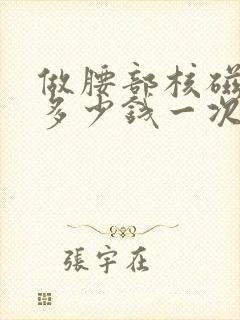 做腰部核磁
多少錢一次
張宇在